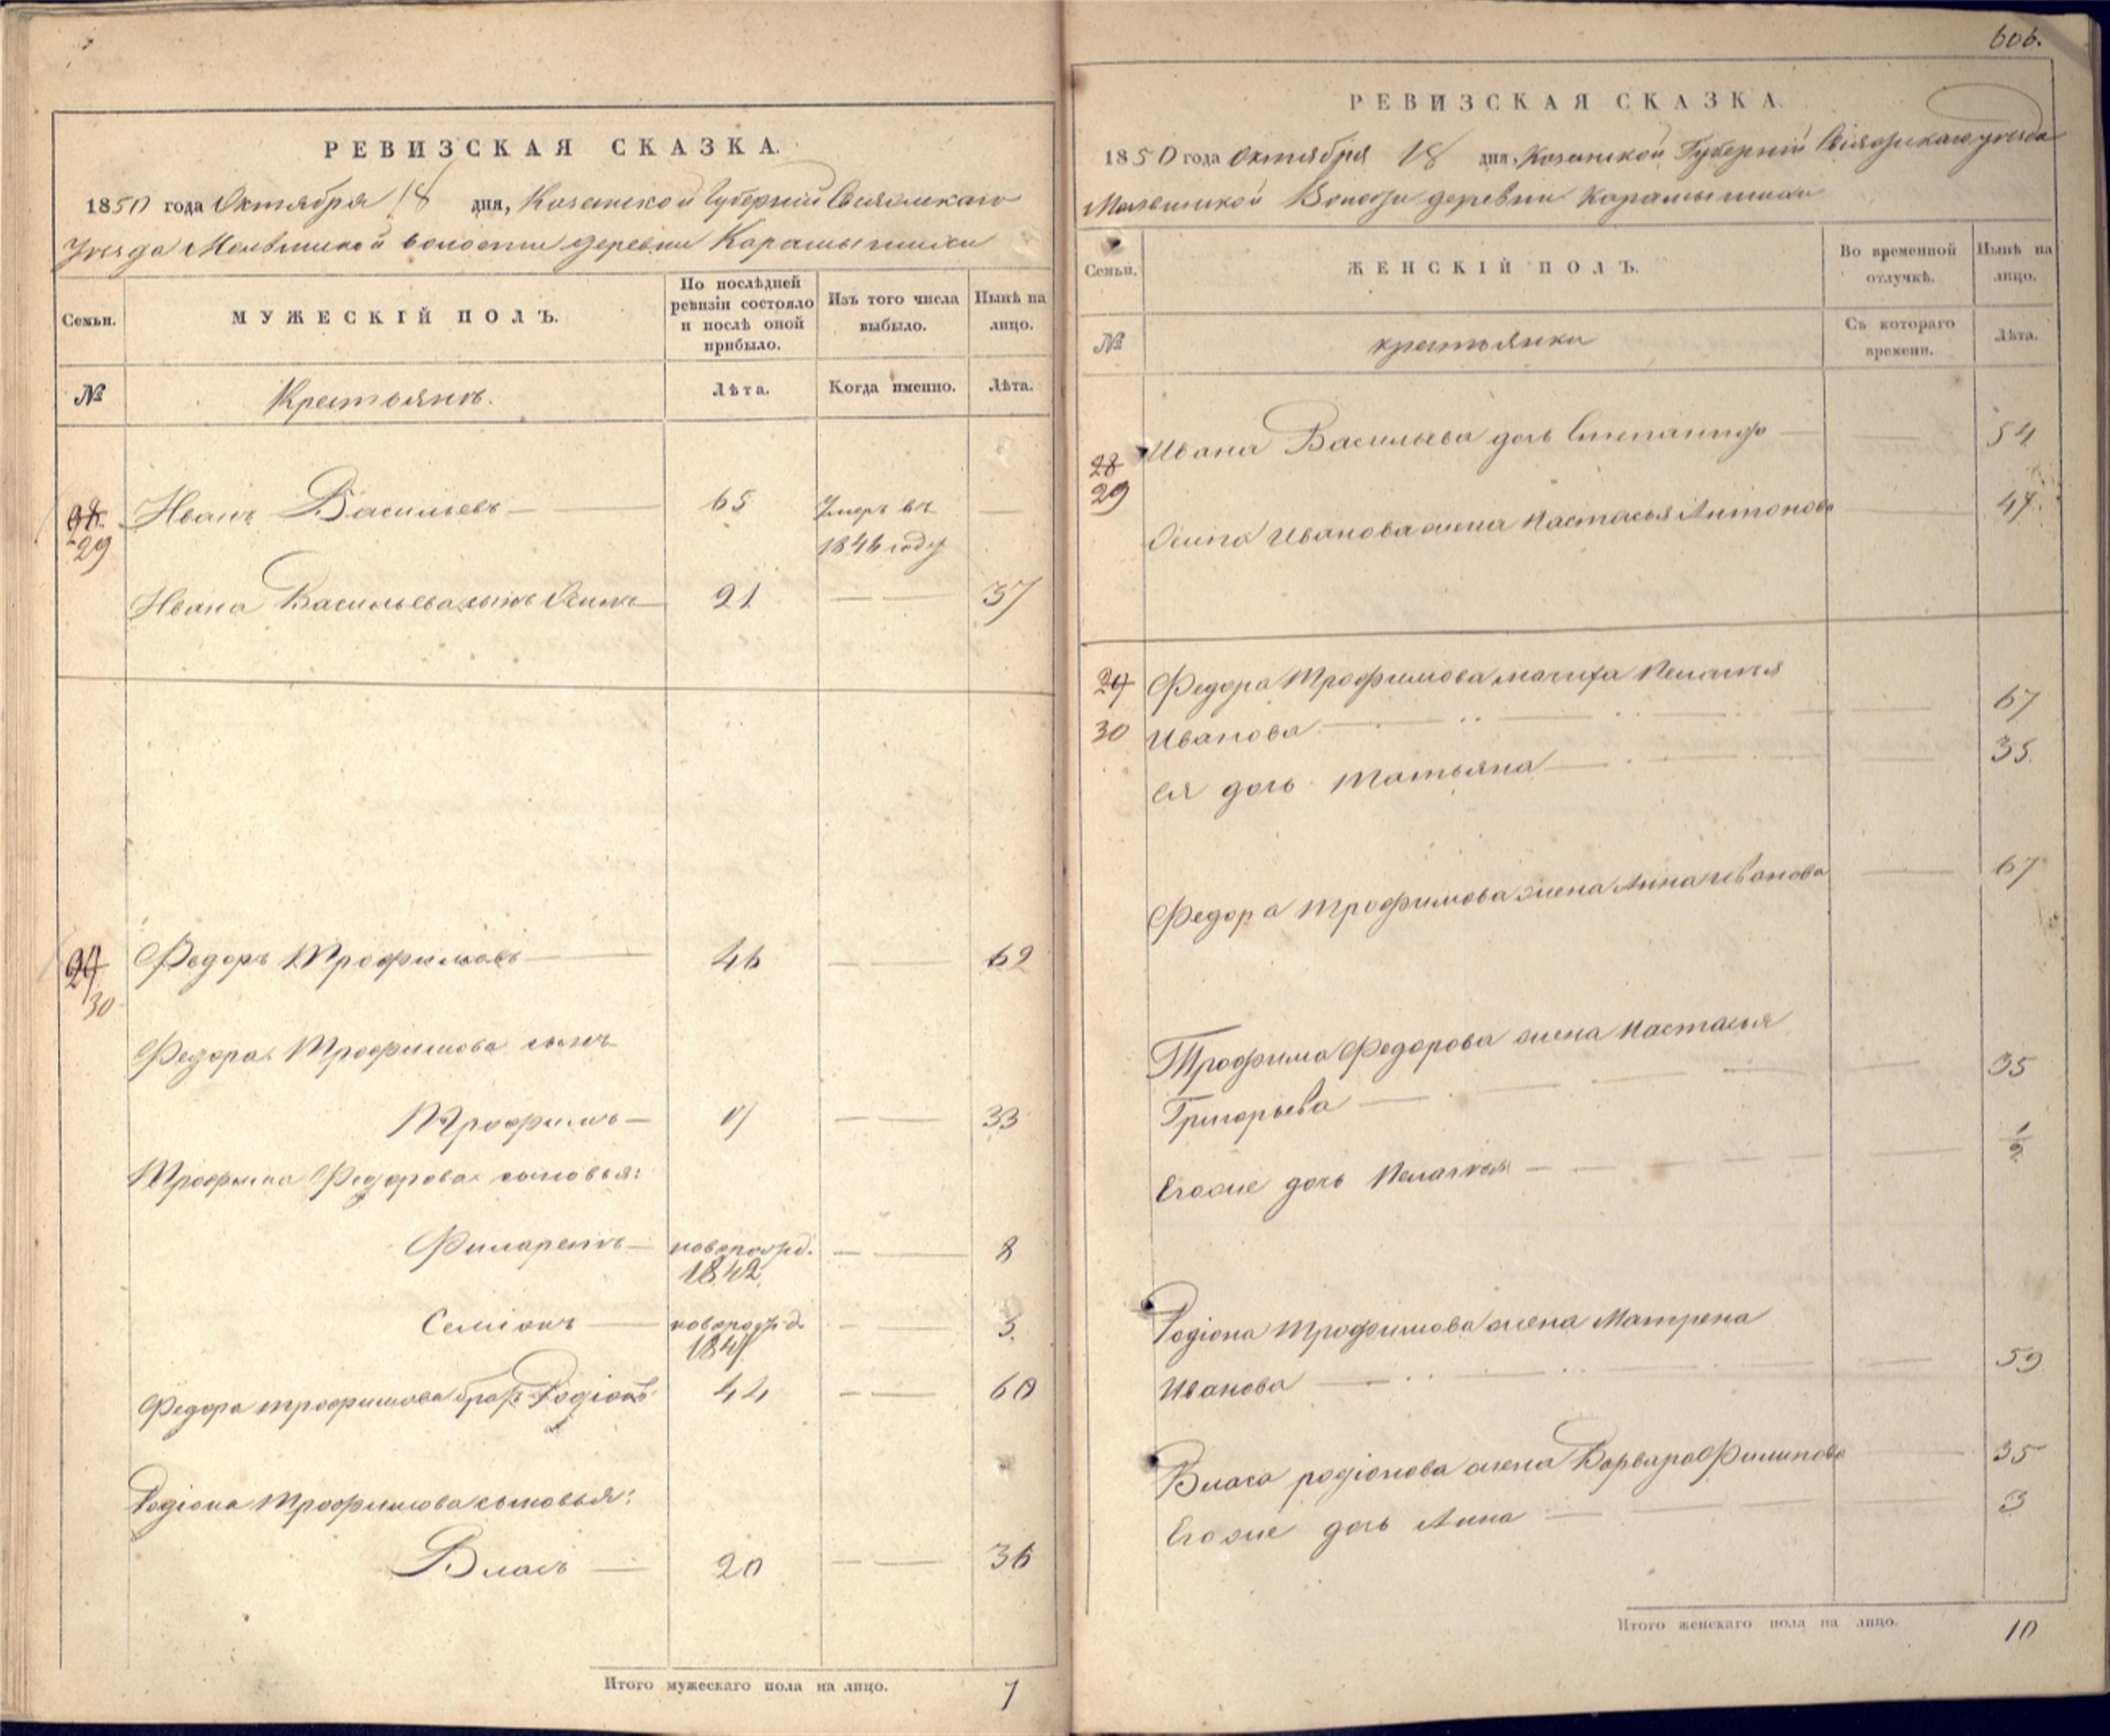 РЕВИЗСКАЯ СКАЗКА.
1850 года Октября 18 дня, Казанской Губерніи Свіяжскаго
Уезда Молвинской волости деревни Карамышихи
Семьи.
МУЖЕСКІЙ ПОЛЪ.
По послѣдней ревизіи состояло и послѣ оной прибыло.
Изъ того числа выбыло.
Нынѣ на лицо.
№
Крестьянъ.
Лѣта.
Когда именно.
Лѣта.
28 Иванъ Васильевъ 65 Умеръ въ
29 1846 году
Ивана Васильева сынъ Осипъ 21 37
29 Федоръ Трофимовъ 46 62
30
Федора Трофимова сынъ
Трофимъ 17 33
Трофима Федорова сыновья:
Филаретъ новорожд. 8
1842
Семіонъ новорожд. 3.
1847
Федора Трофимова братъ Родіонъ 44 60
Родіона Трофимова сыновья:
Власъ 20 36
Итого мужескаго пола на лицо. 7
606.
РЕВИЗСКАЯ СКАЗКА.
1850 года Октября 18 дня, Казанской Губерніи Свіяжскаго уезда
Молвинской Волости деревни Карамышихи
Семьи.
ЖЕНСКІЙ ПОЛЪ.
Во временной отлучкѣ.
Нынѣ на лицо.
№
крестьянки
Съ котораго времени.
Лѣта.
28 Ивана Васильева дочь Степанида 54
29
Осипа Иванова жена Настасья Антонова 47
29 Федора Трофимова мачиха Пелагья
30 Иванова 67
Ея дочь Татьяна 35.
Федора Трофимова жена Анна Иванова 67
Трофима Федорова жена Настасья
Григорьева 35
Егоже дочь Пелагья 1/2
Родіона Трофимова жена Матрена
Иванова 59
Власа родіонова жена Варвара Филипова 35
Егоже дочь Анна 3
Итого женскаго пола на лицо. 10